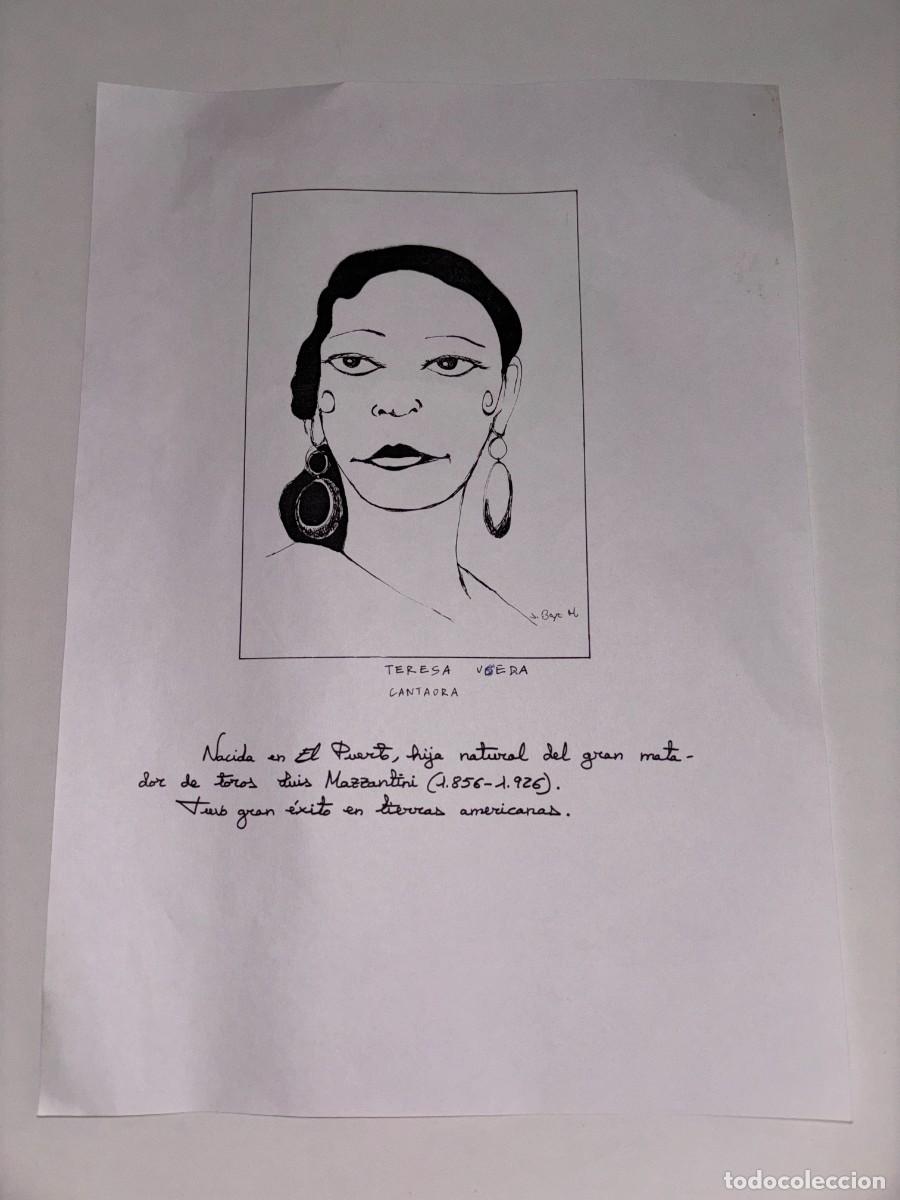 TERESA
CANTAORA
Nacida en El Puerto, hija natural del gran mata-
dor de toros Luis Mazzantini (1.856-1.926).
Tuvo gran éxito en tierras americanas.
todocoleccion